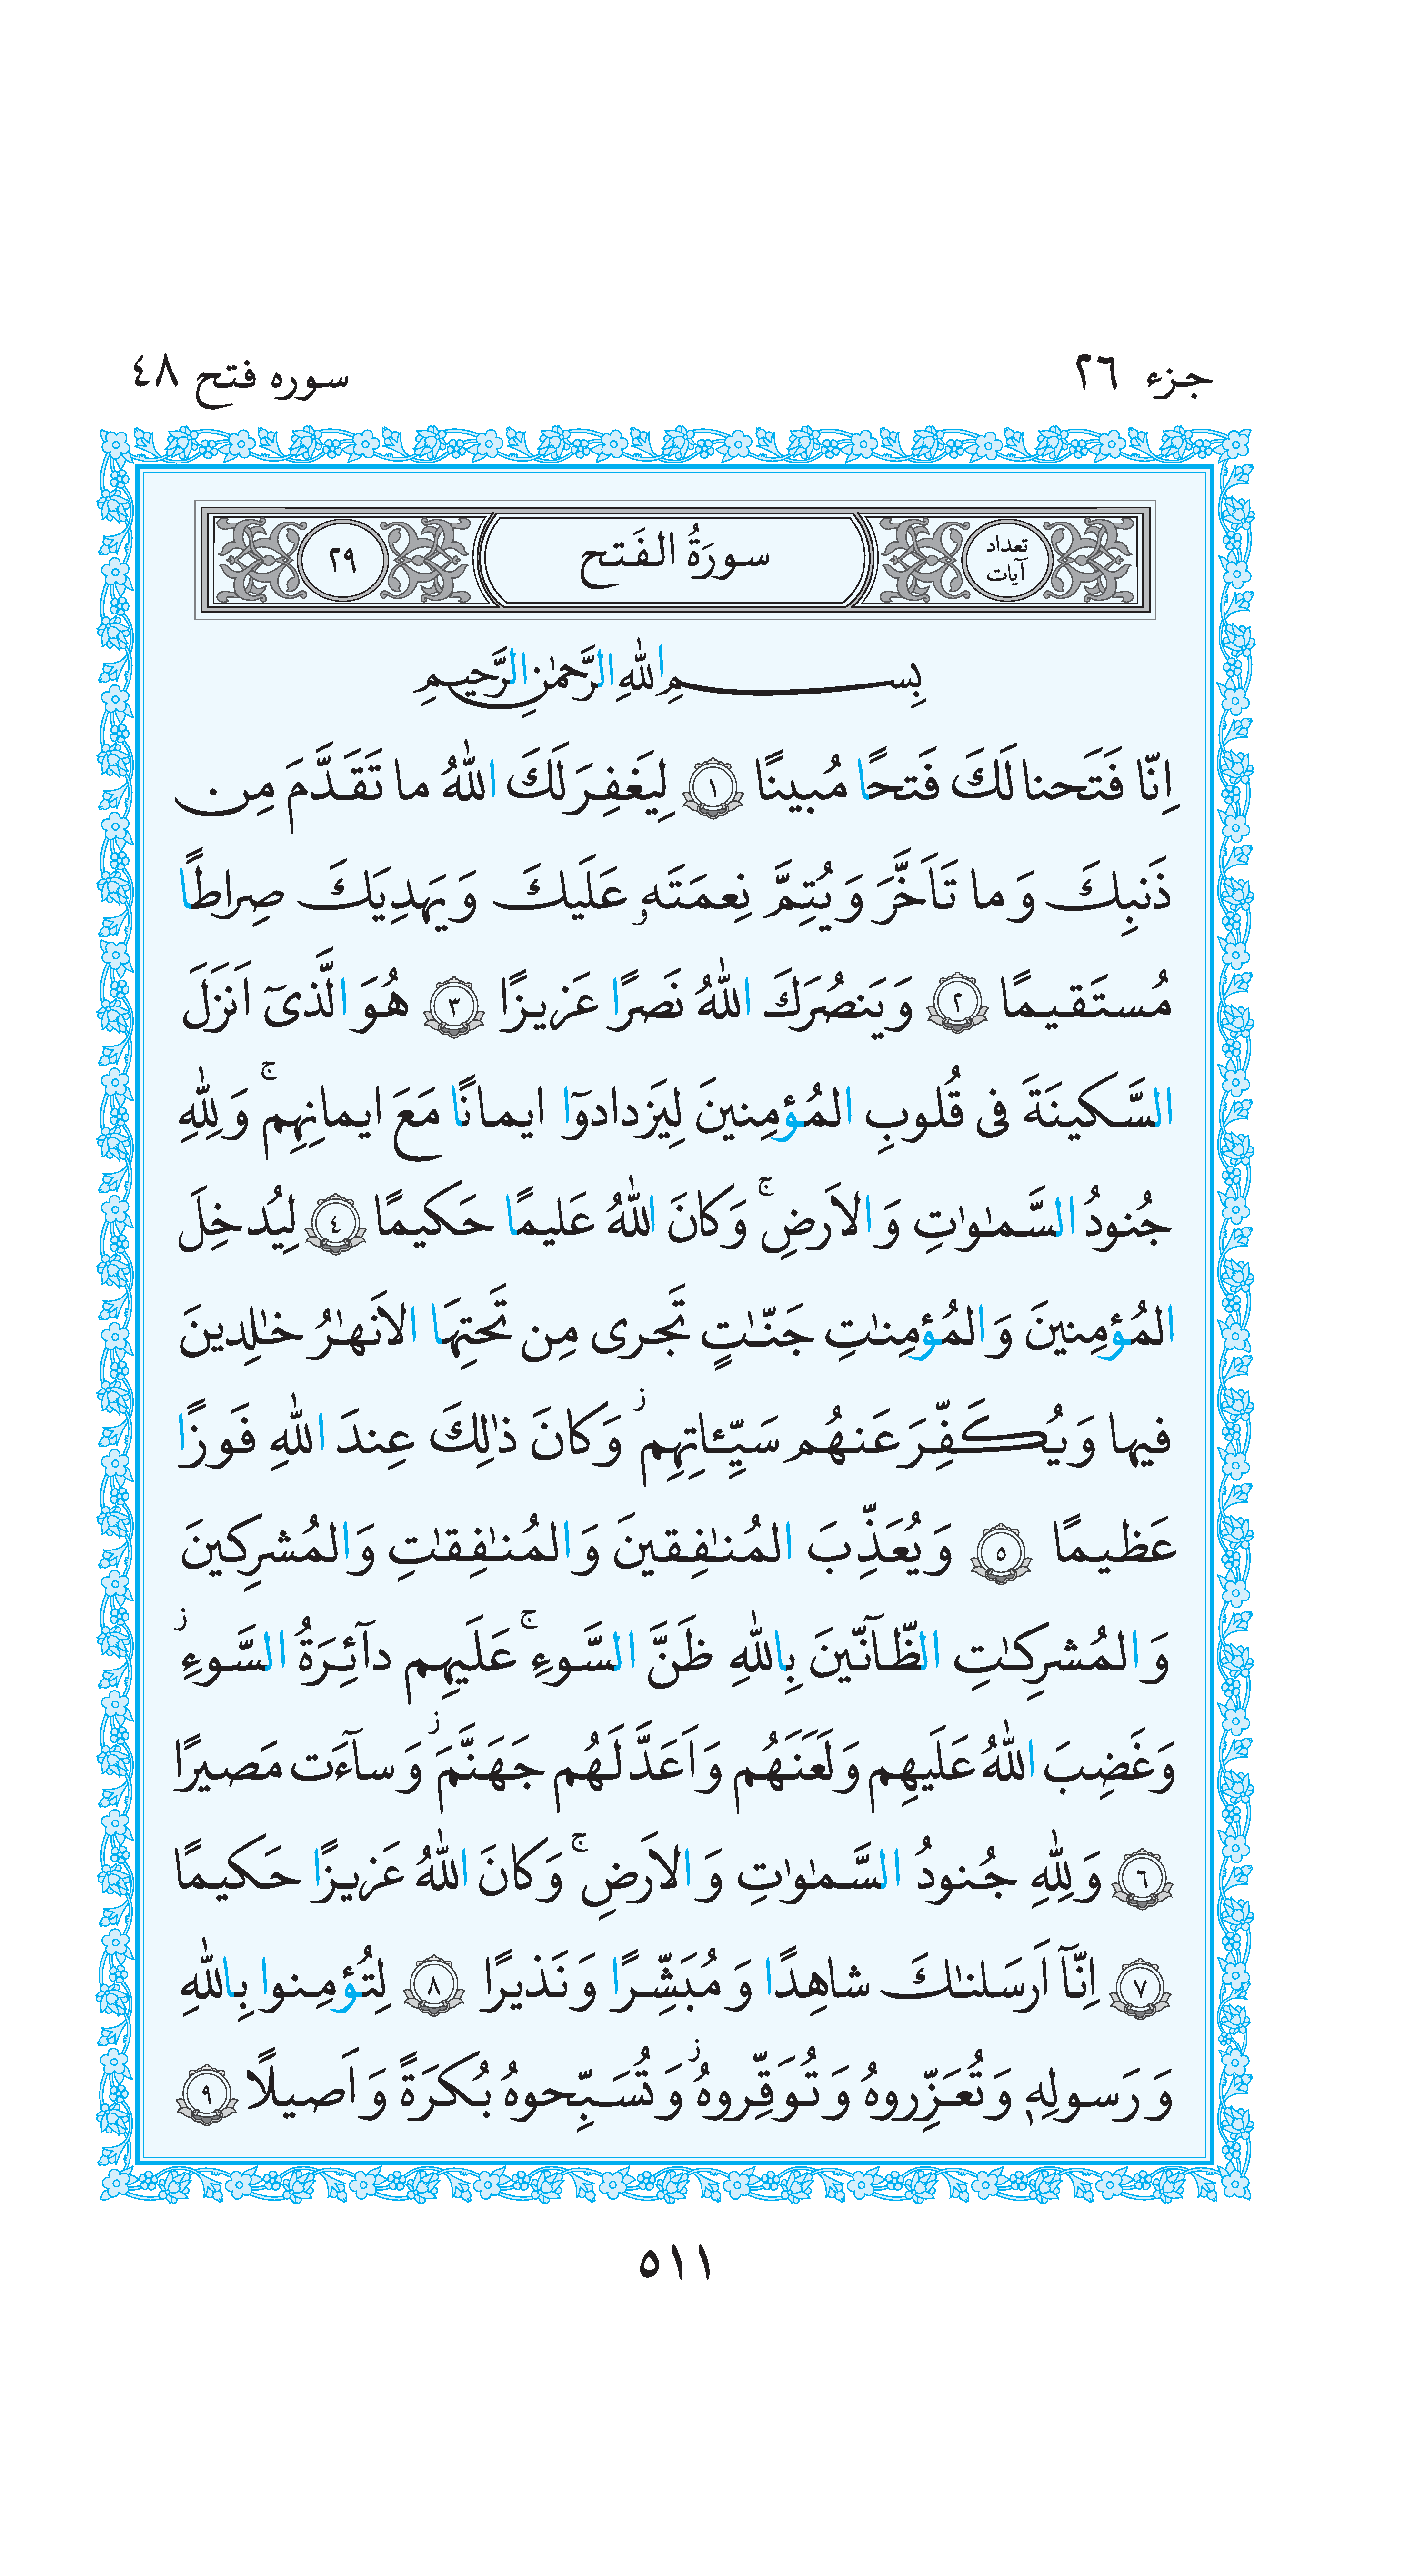 جزء ٢٦
سوره فتح ٤٨
تعداد آیات
سورَةُ الفَتح
٢٩
بِسمِ اللّٰهِ الرَّحمٰنِ الرَّحیمِ
اِنّا فَتَحنا لَكَ فَتحًا مُبینًا ١ لِیَغفِرَ لَكَ اللّٰهُ ما تَقَدَّمَ مِن
ذَنبِكَ وَ ما تَاَخَّرَ وَ یُتِمَّ نِعمَتَهٗ عَلَیكَ وَ یَهدِیَكَ صِراطًا
مُستَقیمًا ٢ وَ یَنصُرَكَ اللّٰهُ نَصرًا عَزیزًا ٣ هُوَ الَّذیٓ اَنزَلَ
السَّكینَةَ فی قُلوبِ المُؤمِنینَ لِیَزدادوٓا ایمانًا مَعَ ایمانِهِم ۚ وَ لِلّٰهِ
جُنودُ السَّمٰوٰتِ وَ الاَرضِ ۚ وَ كانَ اللّٰهُ عَلیمًا حَكیمًا ٤ لِیُدخِلَ
المُؤمِنینَ وَ المُؤمِنٰتِ جَنّٰتٍ تَجری مِن تَحتِهَا الاَنهٰرُ خٰلِدینَ
فیها وَ یُكَفِّرَ عَنهُم سَیِّـٔاتِهِم ز وَ كانَ ذٰلِكَ عِندَ اللّٰهِ فَوزًا
عَظیمًا ٥ وَ یُعَذِّبَ المُنٰفِقینَ وَ المُنٰفِقٰتِ وَ المُشرِكینَ
وَ المُشرِكٰتِ الظّآنّینَ بِاللّٰهِ ظَنَّ السَّوءِ ۚ عَلَیهِم دآئِرَةُ السَّوءِ ز
وَ غَضِبَ اللّٰهُ عَلَیهِم وَ لَعَنَهُم وَ اَعَدَّ لَهُم جَهَنَّمَ ز وَ سآءَت مَصیرًا
٦ وَ لِلّٰهِ جُنودُ السَّمٰوٰتِ وَ الاَرضِ ۚ وَ كانَ اللّٰهُ عَزیزًا حَكیمًا
٧ اِنّآ اَرسَلنٰكَ شاهِدًا وَ مُبَشِّرًا وَ نَذیرًا ٨ لِتُؤمِنوا بِاللّٰهِ
وَ رَسولِهٖ وَ تُعَزِّروهُ وَ تُوَقِّروهُ ز وَ تُسَبِّحوهُ بُكرَةً وَ اَصیلًا ٩
٥١١